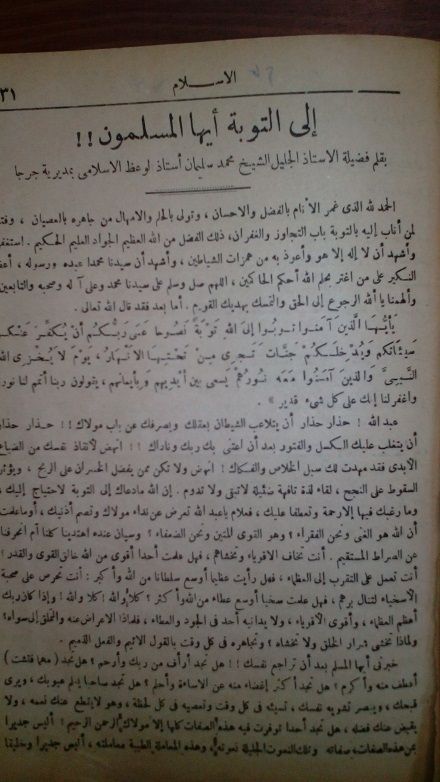 الاسلام
٣١
إلى التوبة أيها المسلمون !!
بقلم فضيلة الاستاذ الجليل الشيخ محمد سليمان أستاذ لوعظ الاسلامى بمديرية جرجا
الحمد لله الذى غمر الأنام بالفضل والاحسان ، وتولى بالحلم والامهال من جاهره بالعصيان ، وفتح
لمن أناب إليه بالتوبة باب التجاوز والغفران، ذلك الفضل من الله العظيم الجواد العليم الحكيم . استغفر
وأشهد أن لا إله إلا هو وأعوذ به من همزات الشياطين ، وأشهد أن سيدنا محمدا عبده ورسوله ، أعظم
النكير على من اغتر بحلم الله أحكم الحاكمين ، اللهم صل وسلم على سيدنا محمد وعلى آله وصحبه والتابعين
وألهمنا يا ألله الرجوع إلى الحق والتمسك بهديك القويم . أما بعد فقد قال الله تعالى .
يأيها الذين آمنوا توبوا إلى الله توبة نصوحا عسى ربكم أن يكفر عنكم
سيئاتكم ويدخلكم جنات تجرى من تحتها الانهار ، يوم لا يخزى الله
النبى والذين آمنوا معه نورهم يسعى بين أيديهم وبأيمانهم ، يقولون ربنا أتمم لنا نورنا
واغفر لنا إنك على كل شىء قدير » .
عبد الله ! حذار حذار أن يتلاعب الشيطان بعقلك ويصرفك عن باب مولاك !! حذار حذار
أن يتغلب عليك الكسل والفتور بعد أن اعتنى بك ربك وناداك !! انهض لانقاذ نفسك من الضياع
الأبدى فقد مهدت لك سبل الخلاص والفكاك ! انهض ولا تكن ممن يفضل الخسران على الربح ، ويؤثر
السقوط على النجح ، لقاء لذة تافهة ضئيلة لاتبقى ولا تدوم . إن الله مادعاك إلى التوبة لاحتياج إليك ،
وما رغبك فيها إلا رحمة وتعطفا عليك ، فعلام ياعبد الله تعرض عن نداء مولاك وتصم أذنيك ، أوماعلمت
أن الله هو الغنى ونحن الفقراء ؟ وهو القوى المتين ونحن الضعفاء ؟ وسيان عنده اهتدينا كلنا أم انحرفنا
عن الصراط المستقيم . أنت تخاف الأقوياء وتخشاهم ، فهل علمت أحدا أقوى من الله خالق القوى والقدر !
أنت تعمل على التقرب إلى العظماء ، فهل رأيت عظيما أوسع سلطانا من الله وأكبر : أنت تحرص على صحبة
الأسخياء لتنال برهم ، فهل علمت سخيا أوسع عطاء من الله وأكثر ؟ كلا والله ! كلا والله ! وإذا كان ربك
أعظم العظماء ، وأقوى الأقوياء ، ولا يدانيه أحد فى الجود والعطاء ، فلماذا الاعراض عنه والتملق إلى سواه ؟
ولماذا تخشى شرار الخلق ولا تخشاه ؟ وتجاهره فى كل وقت بالقول الأثيم والفعل الذميم .
خبرنى أيها المسلم بعد أن تراجع نفسك !! هل تجد أرأف من ربك وأرحم ؟ هل تجد ( مهما فتشت )
أعطف منه وأكرم ؟ هل تجد أكثر إغضاء منه عن الاساءة وأحلم ؟ هل تجد صاحبا يعلم عيوبك ، ويرى
قبحك ، ويبصر تشويه نفسك ، تسىء فى كل وقت وتعصيه فى كل لحظة ، وهو لا يقطع عنك نعمه ، ولا
يقبض عنك فضله ، هل تجد أحدا توفرت فيه هذه الصفات كلها إلا مولاك الرحمن الرحيم ! أليس جديرا
بمن هذه الصفات صفاته وتلك النعوت الجليلة نعوته ، وهذه المعاملة الطيبة معاملته ، أليس جديرا وخليقا